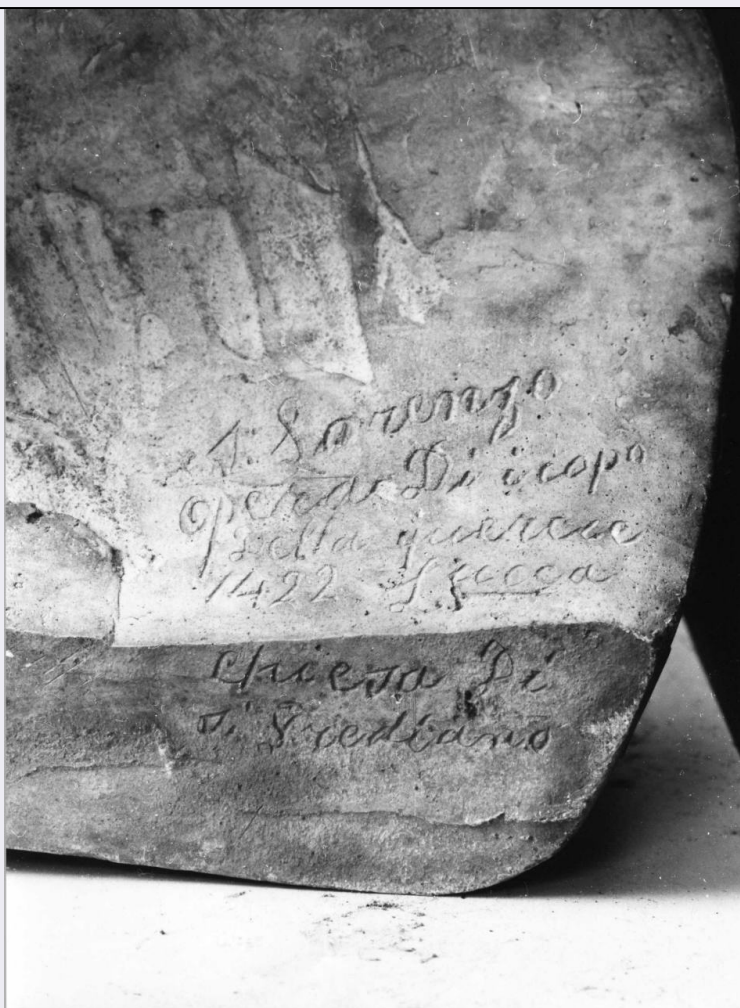 S. Lorenzo
Opera Di iacopo
Della quercie
1422 Lucca
chiesa Di
S. Frediano